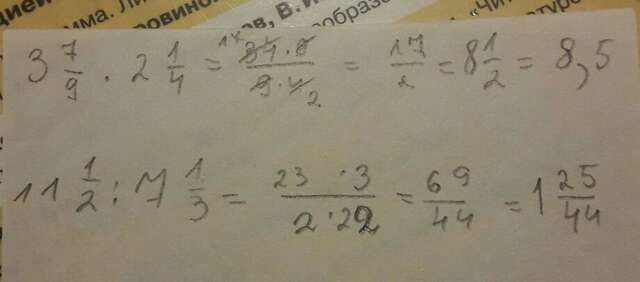 цией
има. Ли
овино
ов, В. И
образо
«Чит
туре
3 7/9 · 2 1/4 = 34·9/9·4 = 17/2 = 8 1/2 = 8,5
11 1/2 : 7 1/3 = 23·3/2·22 = 69/44 = 1 25/44